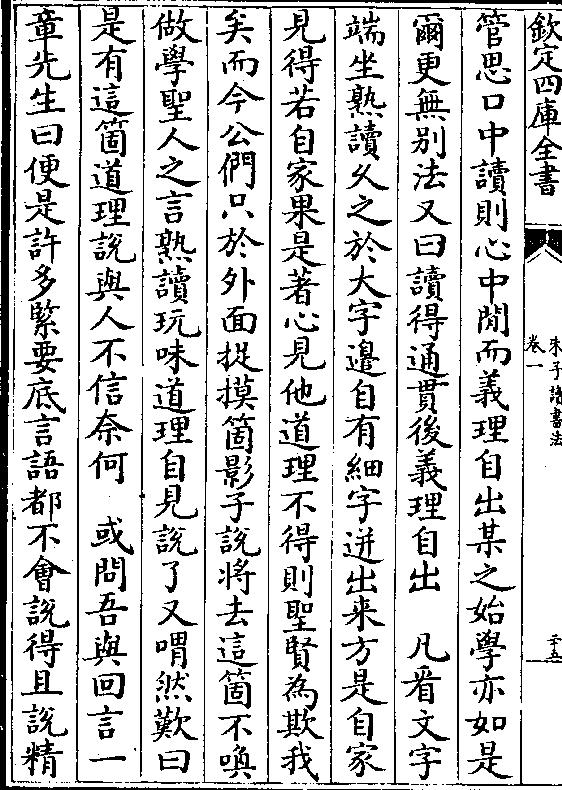 欽定四庫全書
朱子讀書法
卷一
二十五
管思口中讀則心中閒而義理自出某之始學亦如是
爾更無别法又曰讀得通貫後義理自出　凡看文字
端坐熟讀乆之於大字邉自有細字迸出来方是自家
見得若自家果是著心見他道理不得則聖賢為欺我
矣而今公們只於外面捉摸箇影子說將去這箇不喚
做學聖人之言熟讀玩味道理自見說了又喟然歎曰
是有這箇道理說與人不信奈何　或問吾與回言一
章先生曰便是許多緊要底言語都不㑹說得且說精